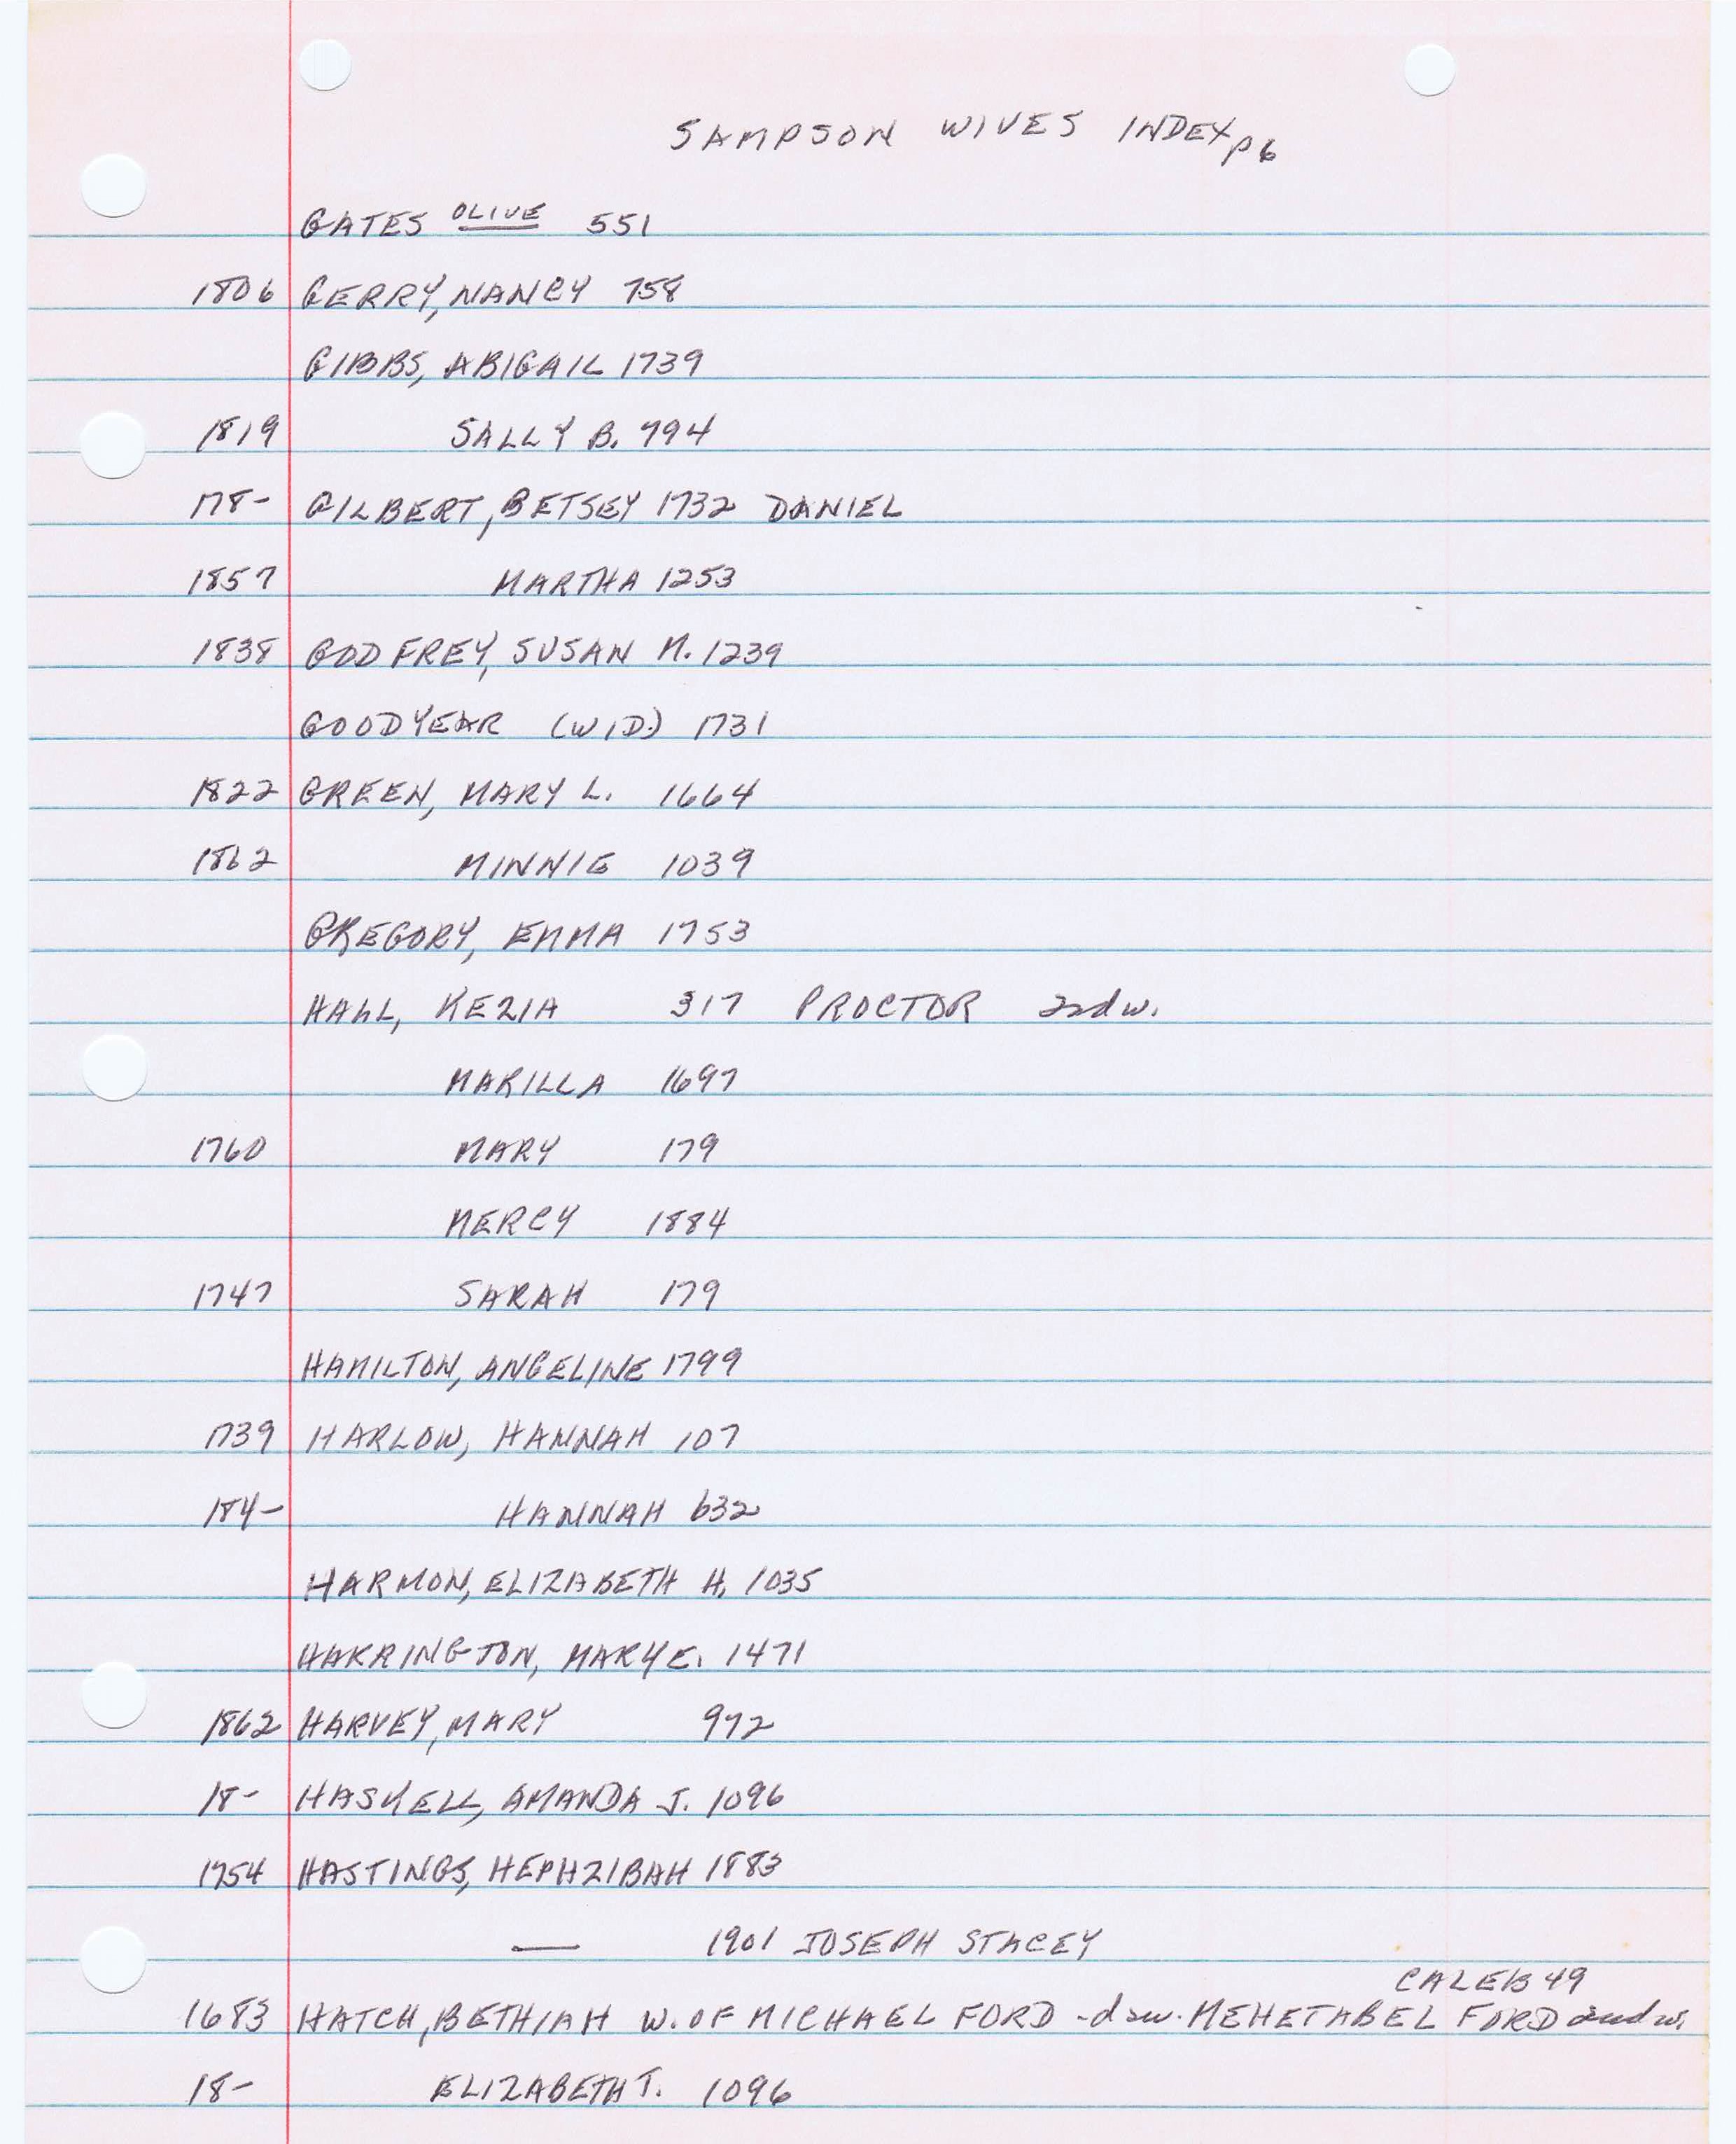 SAMPSON WIVES INDEX p6
GATES OLIVE 551
1806 GERRY, NANCY 758
GIBBS, ABIGAIL 1739
1819 SALLY B. 794
178- GILBERT, BETSEY 1732 DANIEL
1857 MARTHA 1253
1838 GODFREY, SUSAN M. 1239
GOODYEAR (WID.) 1731
1822 GREEN, MARY L. 1664
1862 MINNIE 1039
GREGORY, EMMA 1753
HALL, KEZIA 317 PROCTOR 2nd w.
MARILLA 1697
1760 MARY 179
MERCY 1884
1747 SARAH 179
HAMILTON, ANGELINE 1799
1739 HARLOW, HANNAH 107
184- HANNAH 632
HARMON, ELIZABETH H. 1035
HARRINGTON, MARY E. 1471
1862 HARVEY, MARY 972
18- HASKELL, AMANDA J. 1096
1754 HASTINGS, HEPHZIBAH 1883
— 1901 JOSEPH STACEY
CALEB 49
1683 HATCH, BETHIAH W. OF MICHAEL FORD - MEHETABEL FORD 2nd w.
18- ELIZABETH T. 1096